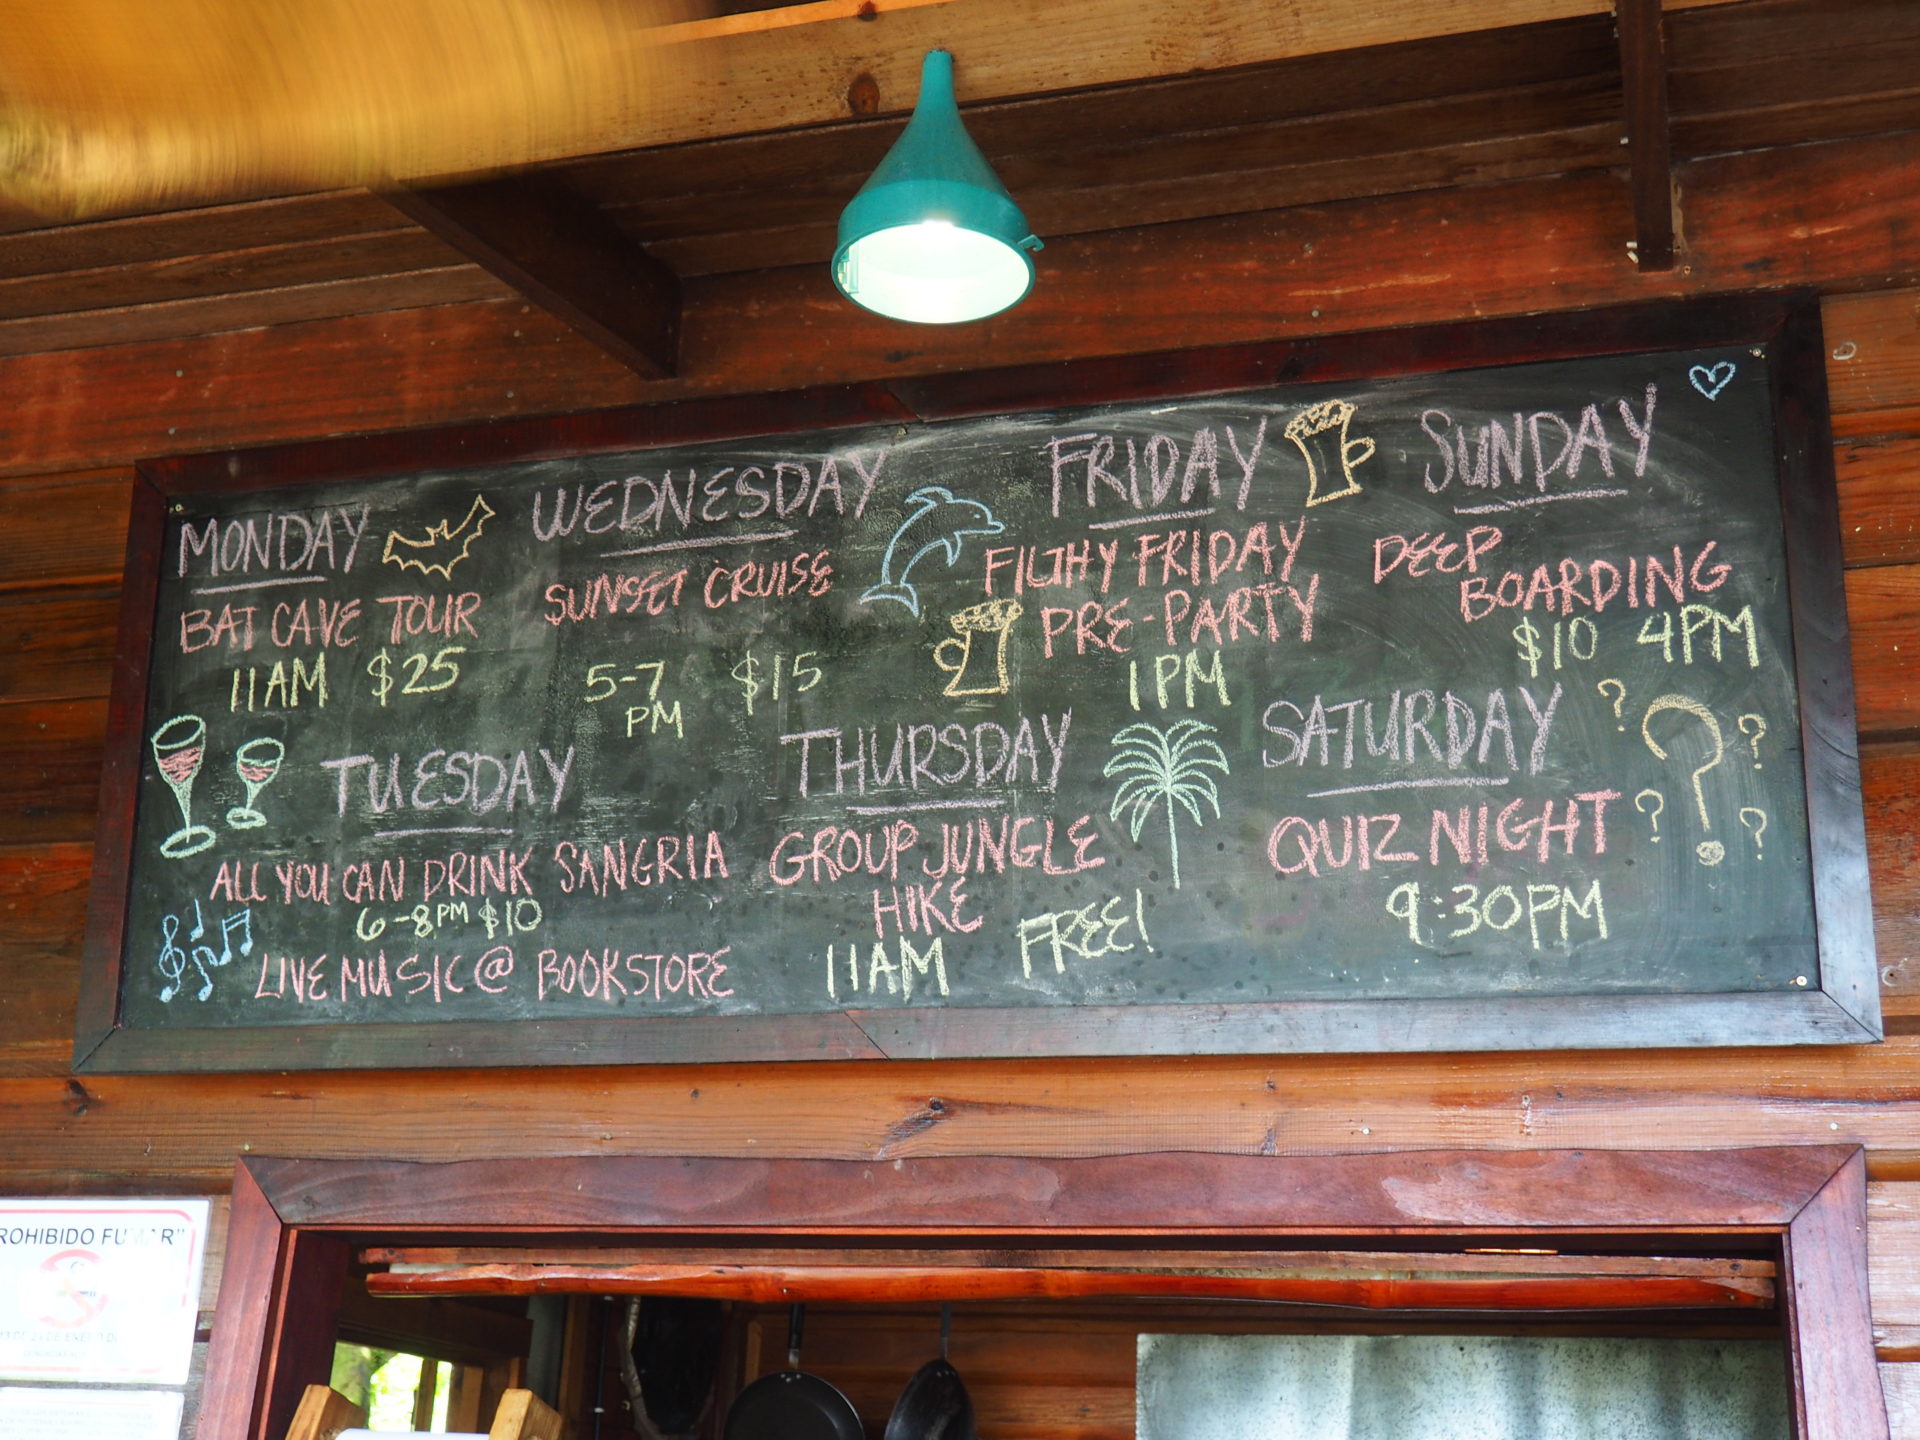 MONDAY
BAT CAVE TOUR
11AM $25
WEDNESDAY
SUNSET CRUISE
5-7 $15
PM
FRIDAY
FILTHY FRIDAY
PRE-PARTY
1PM
SUNDAY
DEEP
BOARDING
$10 4PM
TUESDAY
ALL YOU CAN DRINK SANGRIA
6-8PM $10
LIVE MUSIC @ BOOKSTORE
THURSDAY
GROUP JUNGLE
HIKE
11AM FREE!
SATURDAY
QUIZ NIGHT
9:30PM
? ? ? ? ?
ROHIBIDO FUMAR"